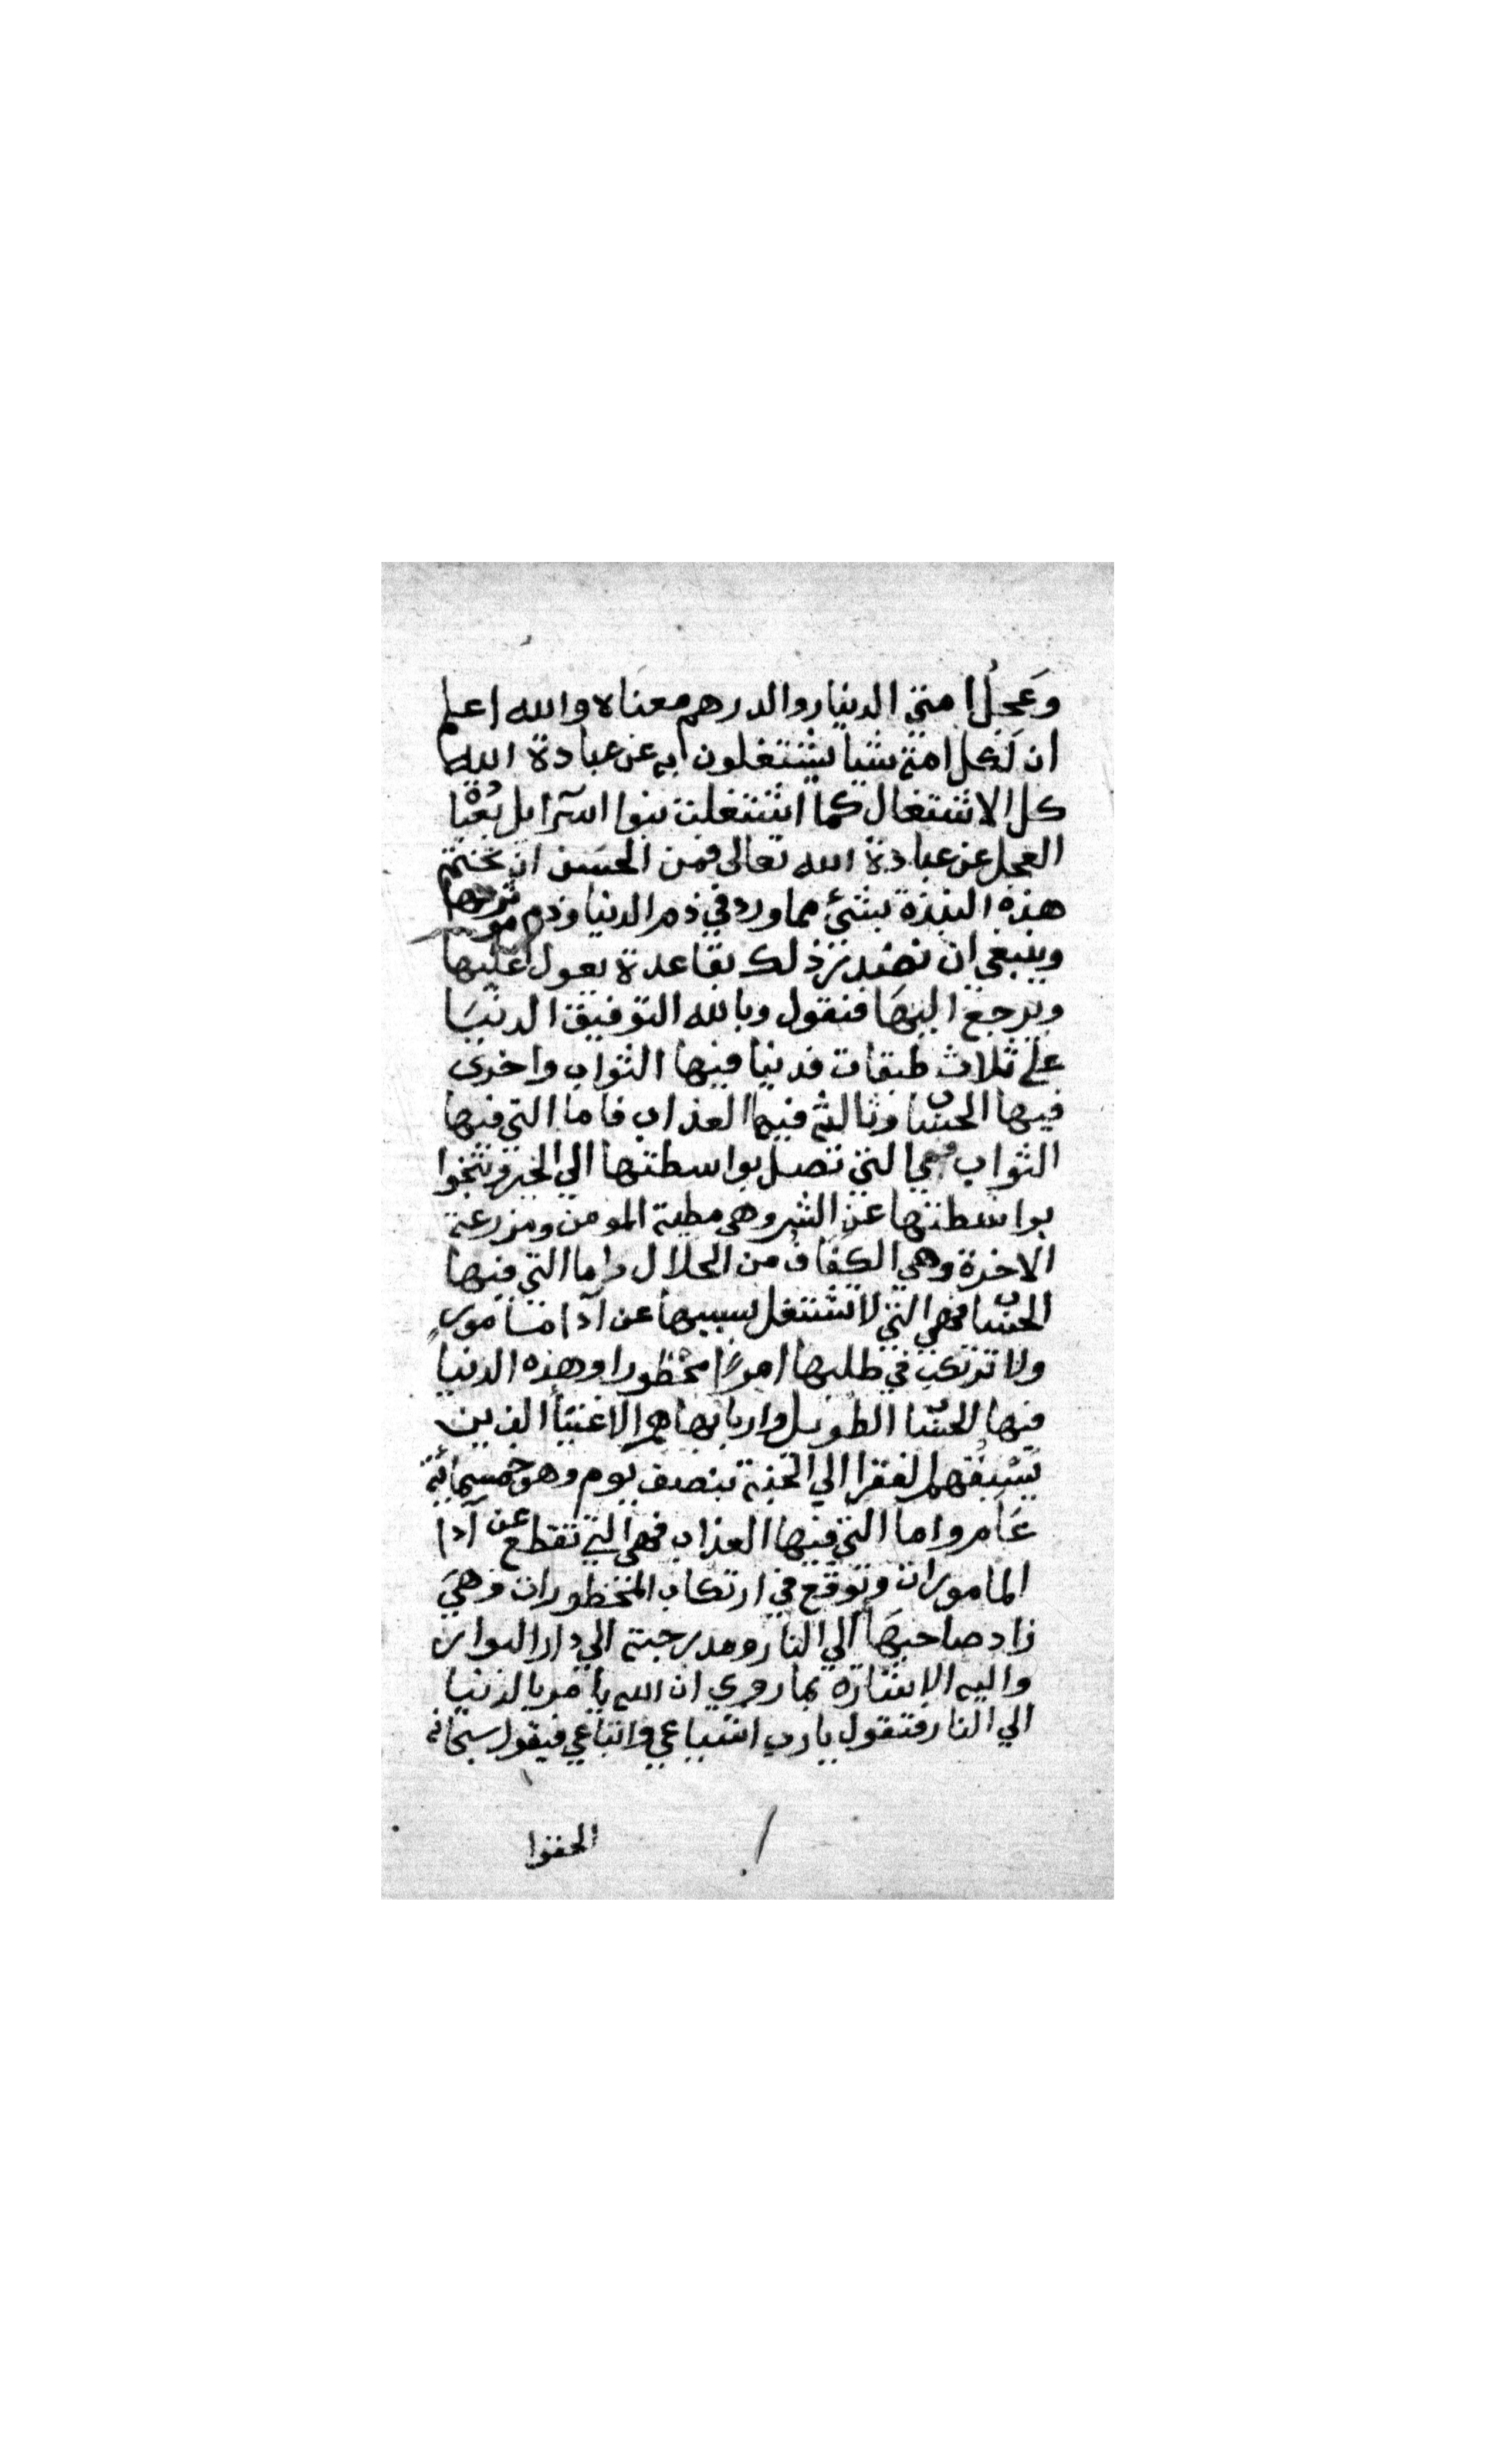 وعجل امتي الدينار والدرهم معناه والله اعلم
ان لكل امة شيا يشتغلون به عن عبادة الله
كل الاشتغال كما اشتغلت بنوا اسرايل بعبا
العجل عن عبادة الله تعالى فمن الحسن ان نختم
هذه النبذة بشئ مما ورد في ذم الدنيا وذم
وينبغي ان نصدر ذلك بقاعدة يعول عليها
ويرجع اليها فنقول وبالله التوفيق الدنيا
على ثلاث طبقات فدنيا فيها الثواب واخرى
فيها الحساب وثالثة فيها العذاب فاما التي فيها
الثواب فهي التي تصل بواسطتها الي الخير وتنجوا
بواسطتها عن الشر وهي مطية المومن ومزرعة
الاخرة وهي الكفاف من الحلال واما التي فيها
الحساب فهي التي لا تشتغل بسببها عن ادا مامور
ولا ترتكب في طلبها امرا محظورا وهذه الدنيا
فيها الحساب الطويل واربابها هم الاغنيا الذين
يسبقهم الفقرا الي الجنة بنصف يوم وهو خمسمائة
عام واما التي فيها العذاب فهي التي تقطع عن ادا
المامورات وتوقع في ارتكاب المحظورات وهي
زاد صاحبها الي النار ومدرجته الي دار البوار
واليه الاشارة بما روي ان الله يامر بالدنيا
الي النار فتقول يا رب اشياعي واتباعي فيقول سبحانه
الحقوا